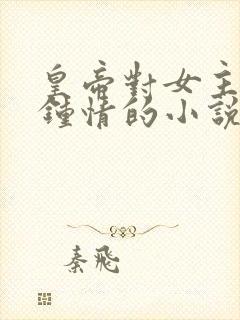 皇帝對女主
鍾情的小說
秦飛